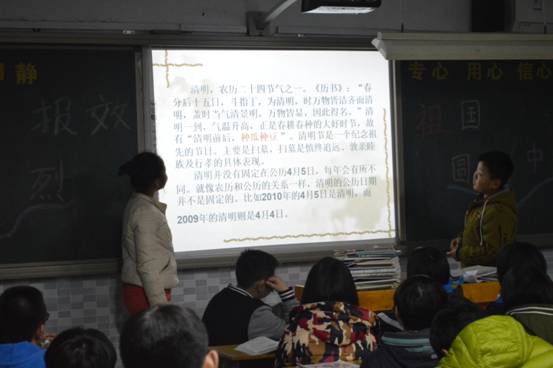 静
专心 用心 信心
报效
祖国
烈
国 中
清明，农历二十四节气之一。《历书》：“春
分后十五日，斗指丁，为清明，时万物皆洁齐而清
明，盖时当气清景明，万物皆显，因此得名。”清
明一到，气温升高，正是春耕春种的大好时节，故
有“清明前后，种瓜种豆”。清明节是一个纪念祖
先的节日，主要是扫墓，扫墓是慎终追远、敦亲睦
族及行孝的具体表现。
清明并没有固定在公历4月5日，每年会有所不
同。就像农历和公历的关系一样，清明的公历日期
并不是固定的。比如2010年的4月5日是清明，而
2009年的清明则是4月4日。